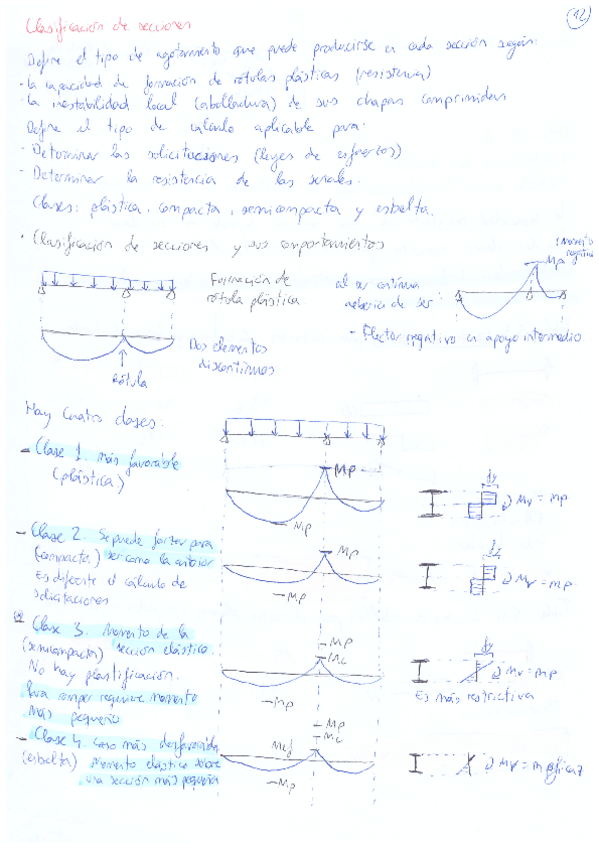 Clasificación de secciones
12
Define el tipo de agotamiento que puede producirse en cada sección según:
- la capacidad de formación de rótulas plásticas (resistencia)
- la inestabilidad local (abolladura) de sus chapas comprimidas
Define el tipo de cálculo aplicable para:
- Determinar las solicitaciones (leyes de esfuerzos)
- Determinar la resistencia de las
Clases: plástica, compacta, semicompacta y esbelta.
· Clasificación de secciones y sus comportamientos
Formación de
rótula plástica
Dos elementos
discontinuos
Rótula
al ser continua
debería de ser:
Mp (Momento
negativo
- Flector negativo en apoyo intermedio
Hay cuatro clases.
- Clase 1. más favorable
(plástica)
Mp
Mp
Mr = Mp
- Clase 2. Se puede forzar para
(compacta) ser como la anterior
Es diferente el cálculo de
solicitaciones
Mp
Mp
Mr = Mp
Clase 3. Momento de la
(semicompacta) sección elástico.
No hay plastificación.
Para romper requiere momento
más pequeño
Mp
Me
Mp
Mr = Mp
Es más restrictiva
- Clase 4. caso más desfavorable
(esbelta) Momento elástico sobre
una sección más pequeña
Mp
Me
Mef
Mp
Mr = m eficaz